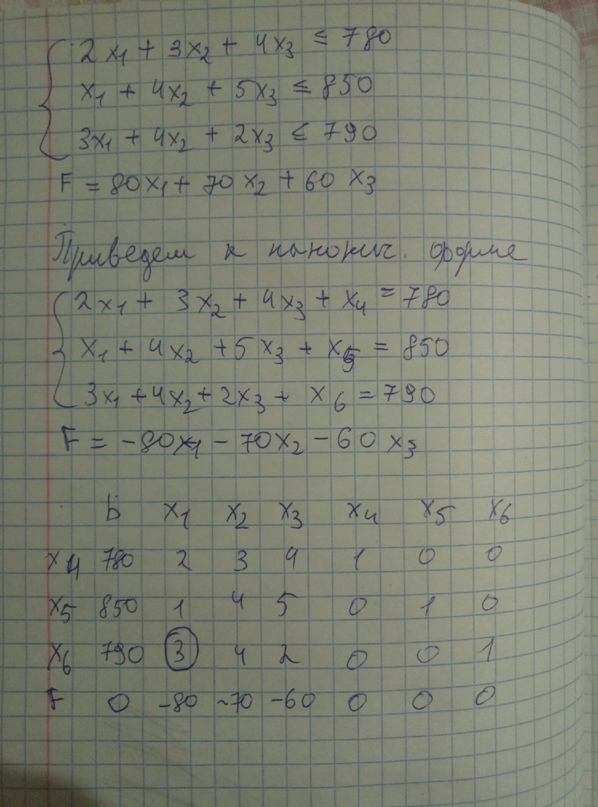 2x₁ + 3x₂ + 4x₃ ≤ 780
x₁ + 4x₂ + 5x₃ ≤ 850
3x₁ + 4x₂ + 2x₃ ≤ 790
F = 80x₁ + 70x₂ + 60x₃
Приведем к канонич. форме
2x₁ + 3x₂ + 4x₃ + x₄ = 780
x₁ + 4x₂ + 5x₃ + x₅ = 850
3x₁ + 4x₂ + 2x₃ + x₆ = 790
F = -80x₁ - 70x₂ - 60x₃
Б x₁ x₂ x₃ x₄ x₅ x₆
x₄ 780 2 3 4 1 0 0
x₅ 850 1 4 5 0 1 0
x₆ 790 3 4 2 0 0 1
F 0 -80 -70 -60 0 0 0